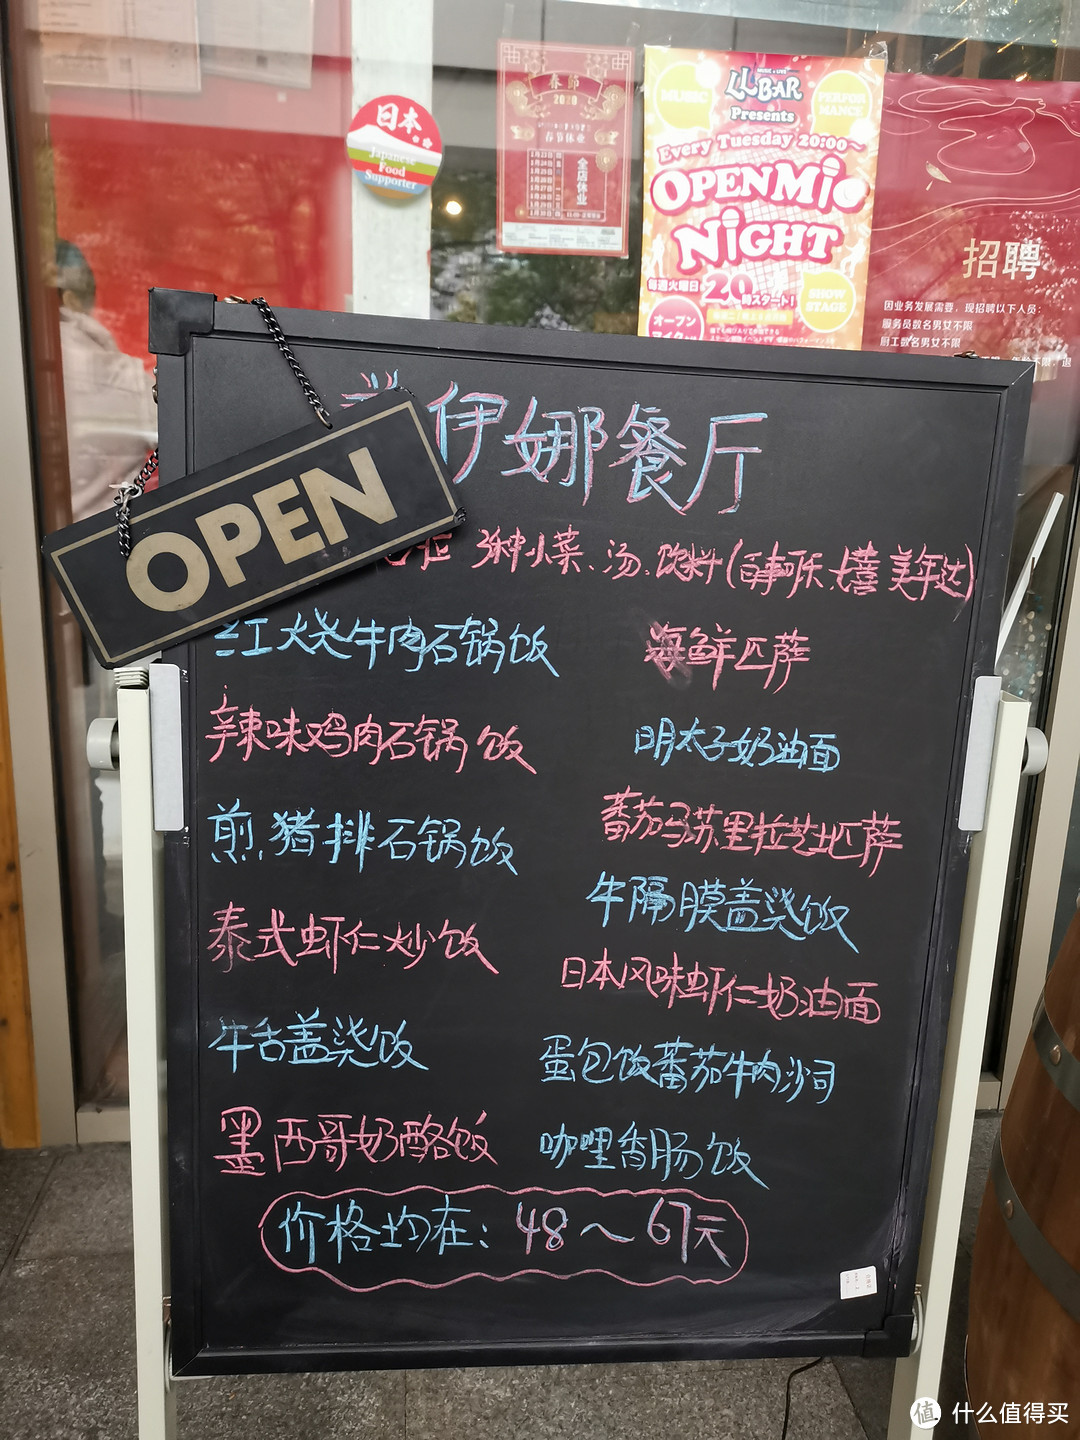 日本
Japanese
Food
Supporter
春節
2020
春节休业
全店休业
MUSIC
LIVE BAR
Presents
PERFOR
MANCE
Every Tuesday 20:00~
OPEN MIC
NIGHT
毎週火曜日 20時スタート!
SHOW
STAGE
オープン
招聘
因业务发展需要，现招聘以下人员：
服务员数名男女不限
厨工数名男女不限
OPEN
伊娜餐厅
3种小菜、汤、饮料(百事可乐 七喜 美年达)
红烧牛肉石锅饭
辣味鸡肉石锅饭
煎猪排石锅饭
泰式虾仁炒饭
牛舌盖浇饭
墨西哥奶酪饭
海鲜匹萨
明太子奶油面
蕃茄马苏里拉芝士匹萨
牛隔膜盖浇饭
日本风味虾仁奶油面
蛋包饭蕃茄牛肉沙司
咖哩香肠饭
价格均在：48～67元
值 什么值得买